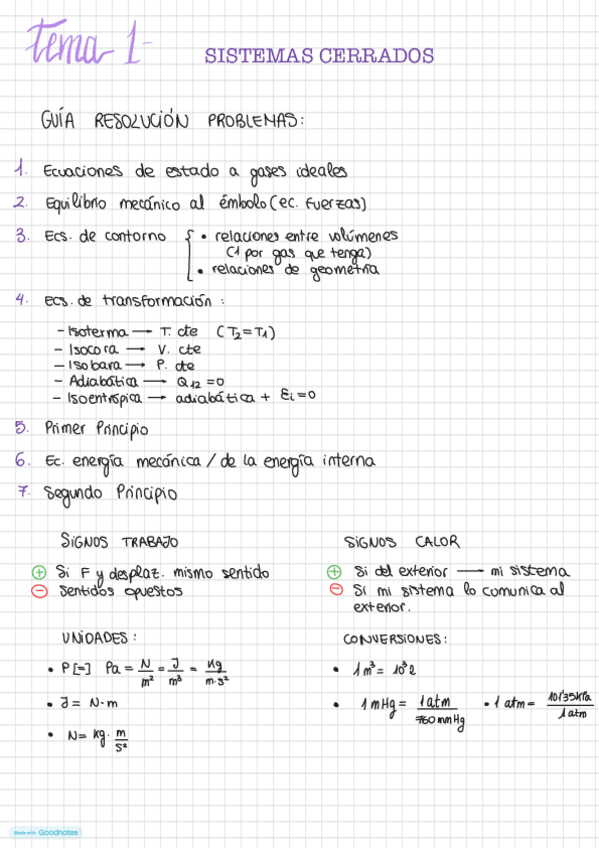 Tema 1-
SISTEMAS CERRADOS
GUÍA RESOLUCIÓN PROBLEMAS:
1. Ecuaciones de estado a gases ideales
2. Equilibrio mecánico al émbolo (ec. fuerzas)
3. Ecs. de contorno { • relaciones entre volúmenes
(1 por gas que tenga)
• relaciones de geometría
4. Ecs. de transformación :
- Isoterma → T. cte (T2=T1)
- Isocora → V. cte
- Isobara → P. cte
- Adiabática → Q12 = 0
- Isoentrópica → adiabática + Ei=0
5. Primer Principio
6. Ec. energía mecánica / de la energía interna
7. Segundo Principio
SIGNOS TRABAJO
+ Si F y desplaz. mismo sentido
- Sentidos opuestos
SIGNOS CALOR
+ Si del exterior → mi sistema
- Si mi sistema lo comunica al
exterior.
UNIDADES:
• P [=] Pa = N/m² = J/m³ = Kg/m·s²
• J = N·m
• N= Kg· m/s²
CONVERSIONES:
• 1 m³ = 10³ l
• 1 mHg = 1 atm/760 mmHg • 1 atm = 101'35 KPa/1 atm
Made with Goodnotes